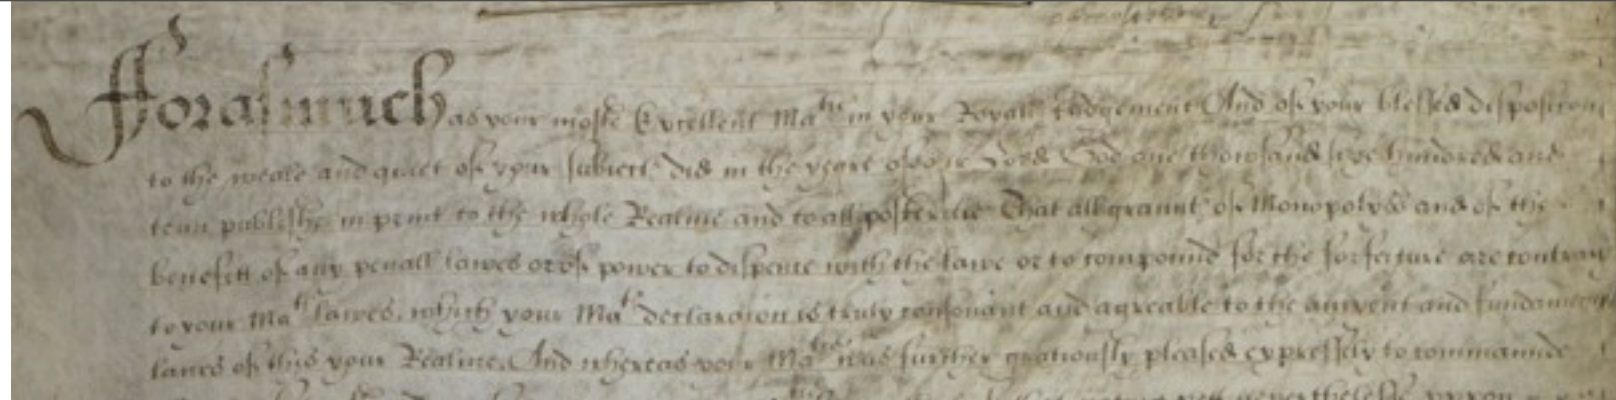 Fforasmuch as your moste Excellent Ma^tie in your Royall Judgement And of your blessed disposicion
to the weale and quiet of your subiects did in the yeare of our Lord God one thowsand sixe hundred and
tenn publishe in print to the whole Realme and to all posteritie That all graunts of Monopolyes and of the
benefitt of any penall lawes or of power to dispence with the lawe or to compound for the forfeiture are contrary
to your Ma^ts lawes, which your Ma^ts declaracion is truly consonant and agreable to the auncient and fundamentall
lawes of this your Realme. And whereas your Ma^tie was further gratiously pleased expressely to commaunde
neverthelesse uppon